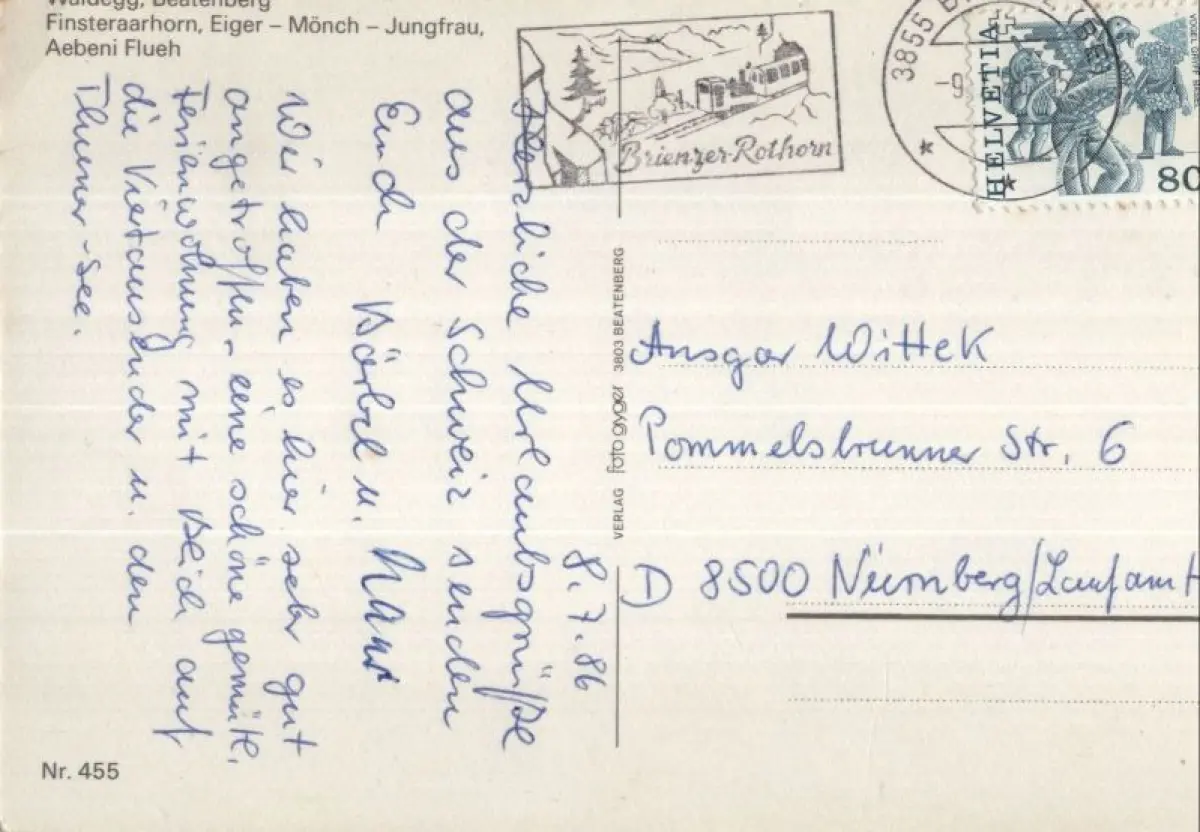 Waldegg, Beatenberg
Finsteraarhorn, Eiger – Mönch – Jungfrau,
Aebeni Flueh
Brienzer-Rothorn
3855
-9
HELVETIA
80
8.7.86
Herzliche Urlaubsgrüße
aus der Schweiz senden
Euch Bärbel u.
Wir haben es hier sehr gut
angetroffen, eine schöne gemütl.
Ferienwohnung mit Blick auf
die Viertausender u. den
Thuner-See.
VERLAG foto gyger 3803 BEATENBERG
Ansgar Wittek
Pommelsbrunner Str. 6
D 8500 Nürnberg/Laufamh
Nr. 455